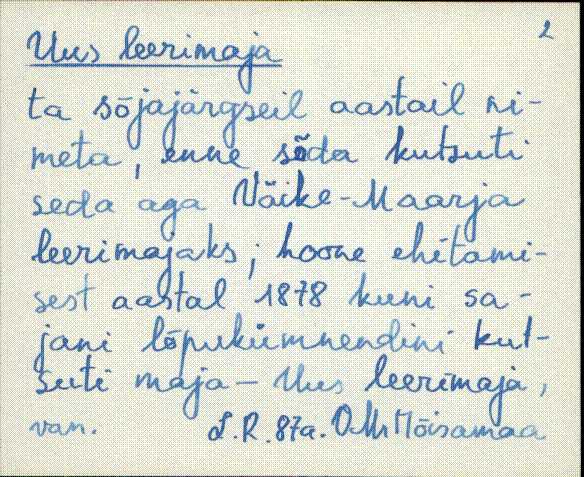 2
Uus leerimaja
ta sõjajärgseil aastail ni-
meta, enne sõda kutsuti
seda aga Väike-Maarja
leerimajaks; hoone ehitami-
sest aastal 1878 kuni sa-
jani lõpukümnendini kut-
suti maja - Uus leerimaja,
van. L.R. 87a. O.M. Mõisamaa